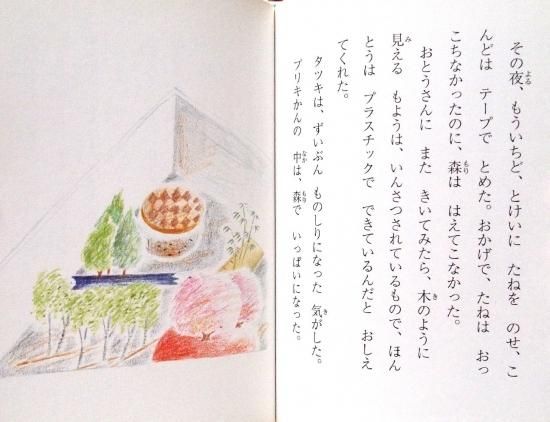 その夜、もういちど、とけいに たねを のせ、こ
んどは テープで とめた。おかげで、たねは おっ
こちなかったのに、森は はえてこなかった。
おとうさんに また きいてみたら、木のように
見える もようは、いんさつされているもので、ほん
とうは プラスチックで できているんだと おしえ
てくれた。
タツキは、ずいぶん ものしりになった 気がした。
ブリキかんの 中は、森で いっぱいになった。